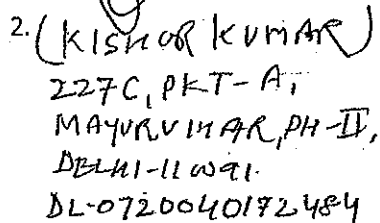 2. (KISHOR KUMAR)
227C, PKT-A,
MAYUR VIHAR, PH-II,
DELHI-110091.
DL-0720040172484